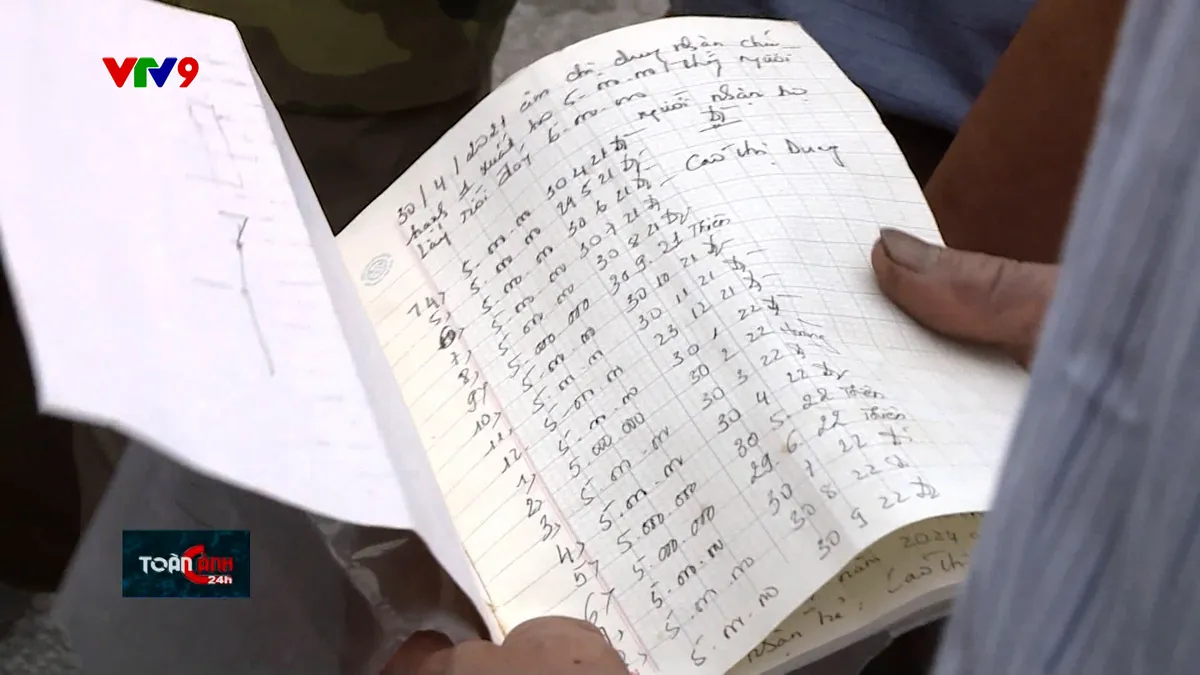 VTV9
30/4/2021 âm chị dung nhận chủ
hanh 1 xuất họ 5.m.m tháng người
lấy rồi đóng 6.m.m người nhận họ
Cao Thị Dung
74> 5.m.m 30 4 21
5> 5.m.m 29 5 21
5.m.m 30 6 21
7> 5.m.m 30 7 21
8> 5.m.m 30 8 21
9> 5.000.000 30.9.21 Thiên
10> 5.m.m 30 10 21
11> 5.m.m 30 11 21
12> 5.m.m 23 12 21
1> 5.m.m 30 1 22
2> 5.000.000 30 2 22
3> 5.m.m 30 3 22
4> 5.m.m 30 4 22
5> 5.000.000 30 5.22 Thiên
6> 5.000.000 29.6.22 Thiên
5.m.m 30 7 22
5.m.m 30 8 22
5.m.m 30 9 22
năm 2024
nhận hụi: Cao Thị
TOÀN CẢNH
24h